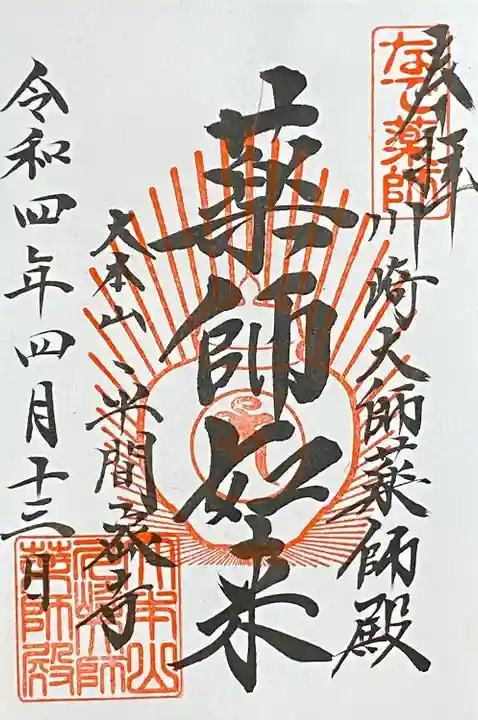 奉拝
なで薬師
川崎大師薬師殿
薬師如来
大本山
平間寺
令和四年四月十三日
大本山
川崎大師
薬師殿